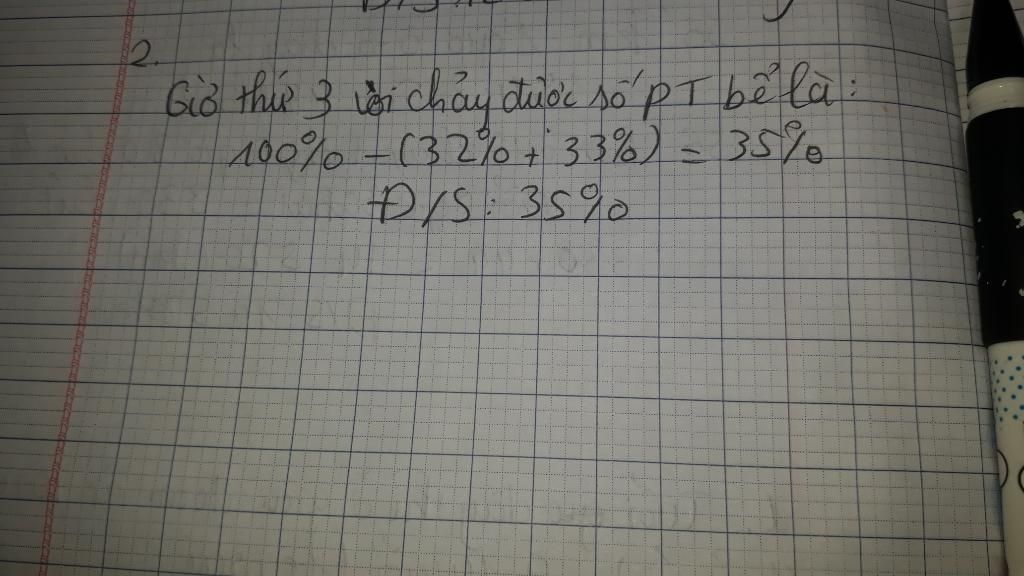 2.
Giờ thứ 3 vòi chảy được số PT bể là:
100% - (32% + 33%) = 35%
Đ/S: 35%